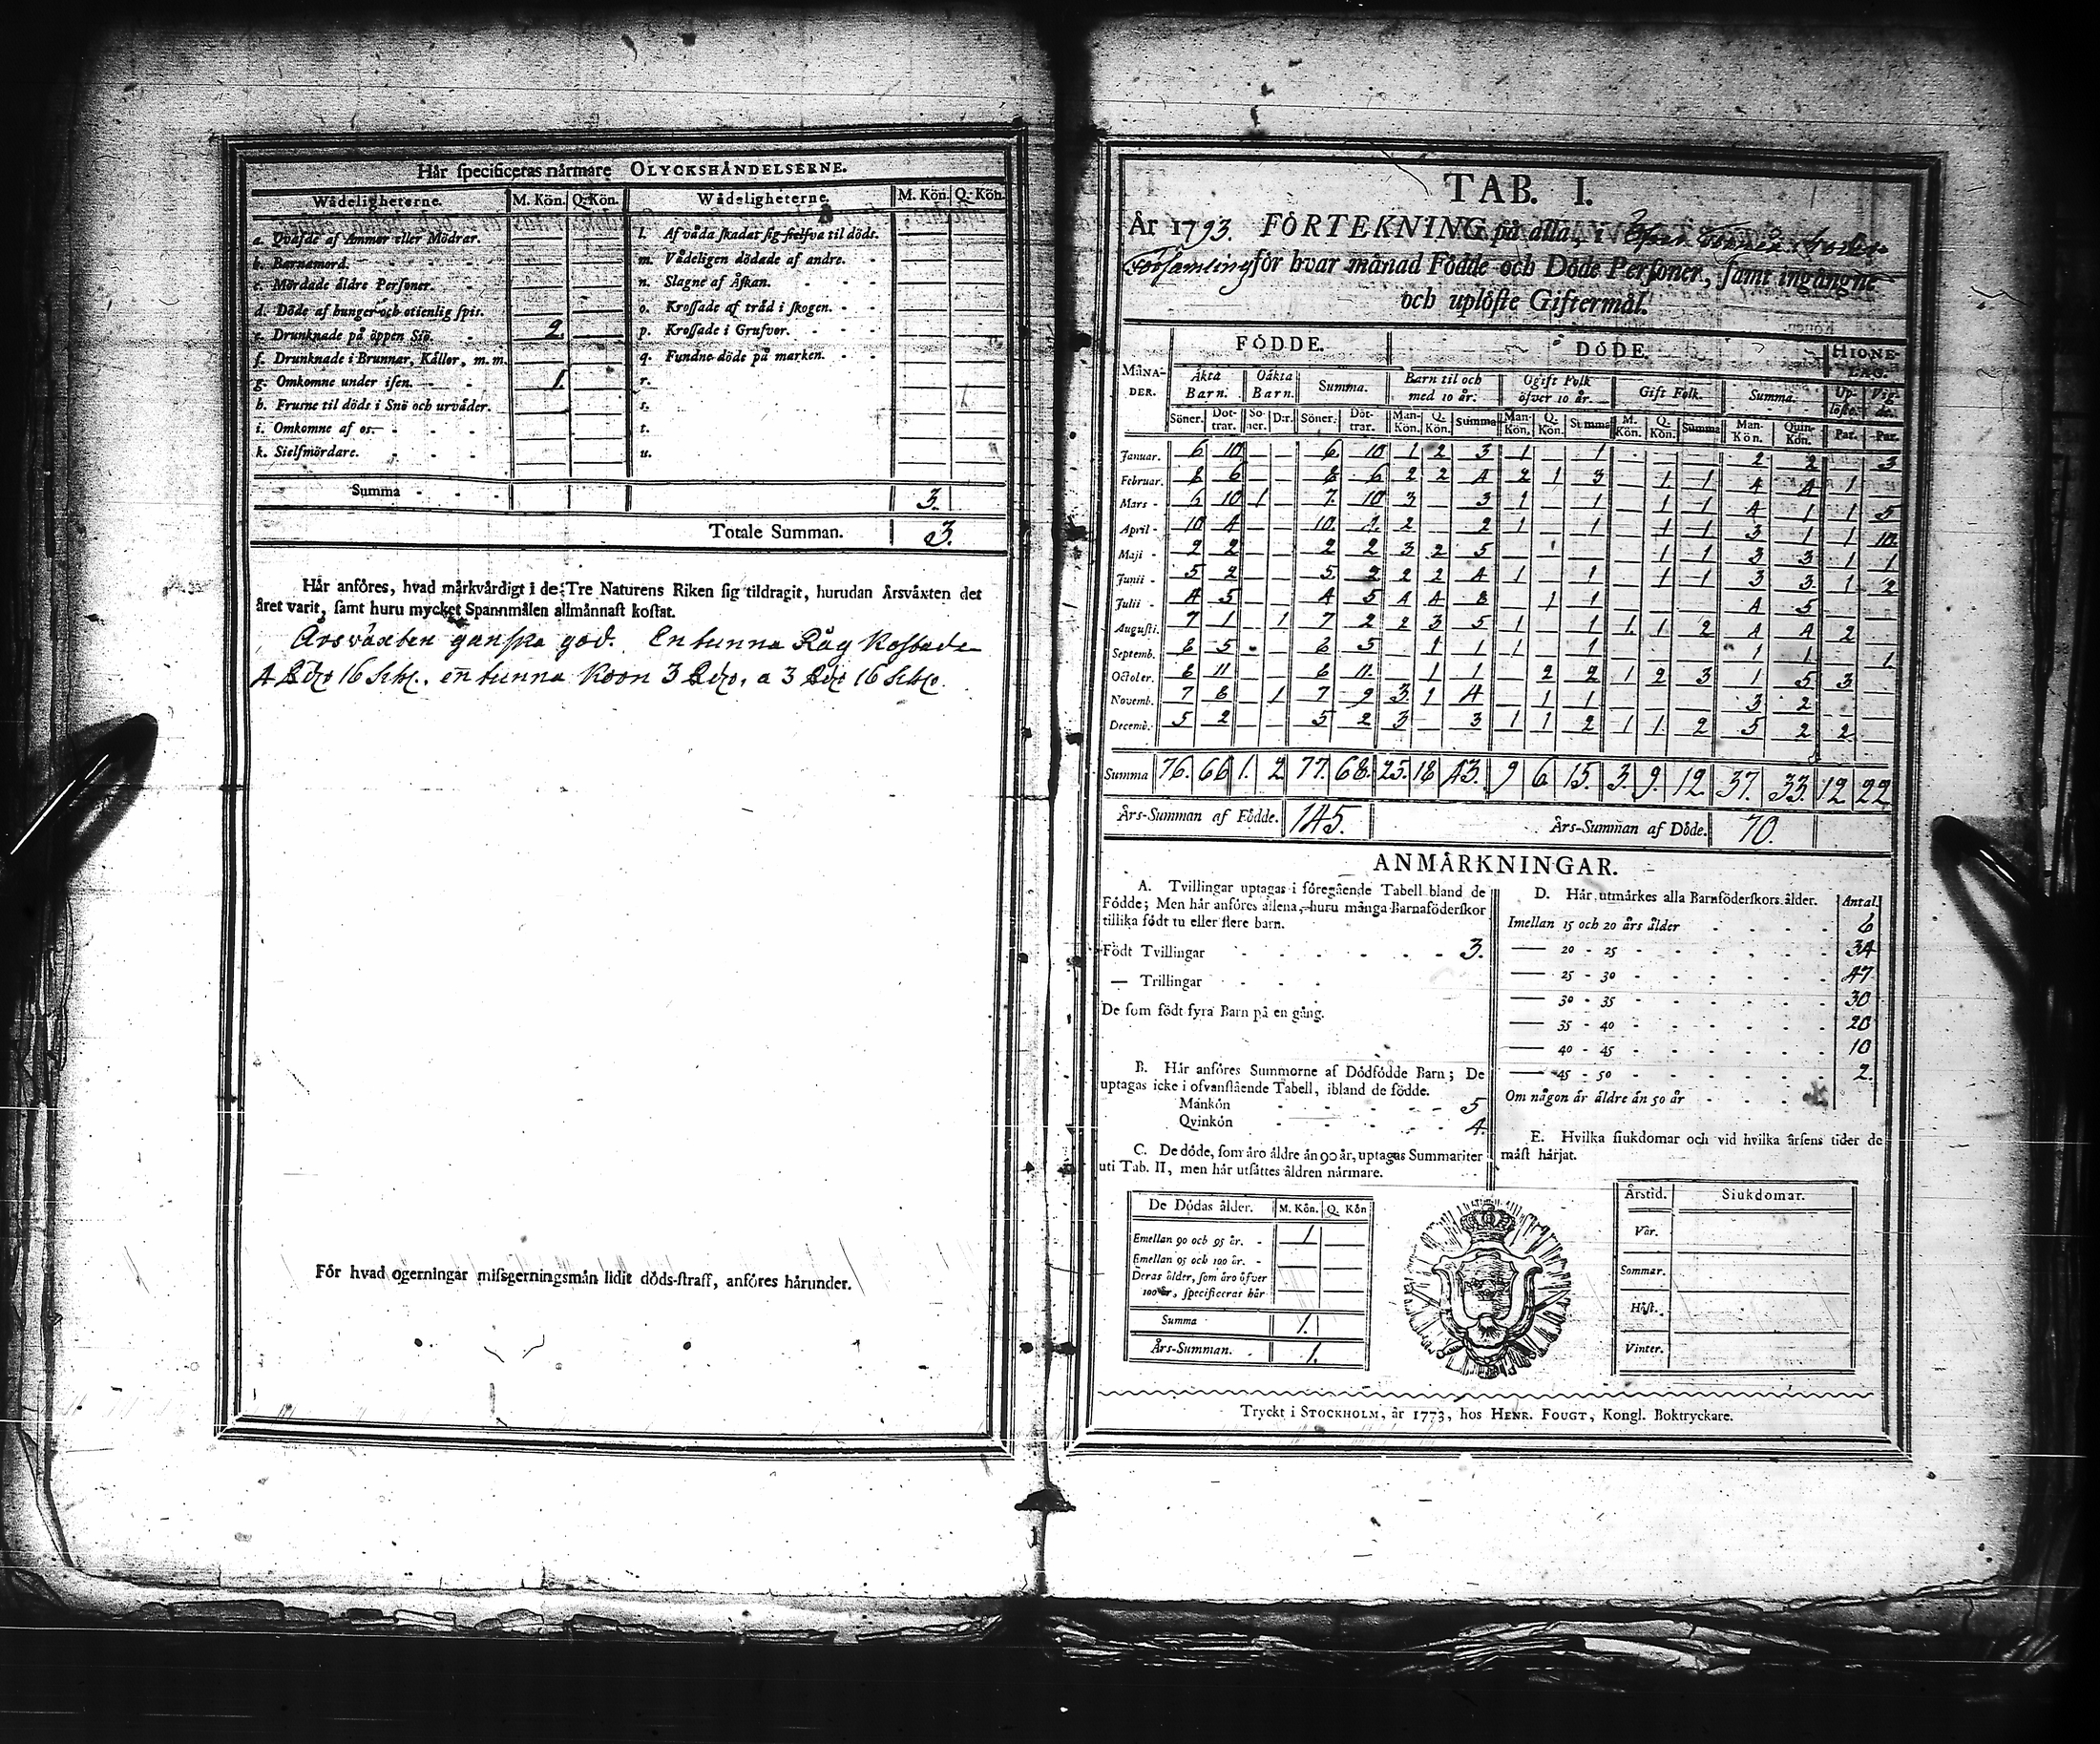 Hår specificeras nårmare OLYCKSHÅNDELSERNE.
Wådeligheterne. M. Kön. Q. Kön. Wådeligheterne. M. Kön. Q. Kön.
a. Qvåfde af Ammor eller Mödrar. l. Af våda skadat sig sielfva til döds.
b. Barnamord. m. Vådeligen dödade af andre.
c. Mördade åldre Personer. n. Slagne af Åskan.
d. Döde af hunger och otienlig spis. o. Krossade af tråd i skogen.
e. Drunknade på öppen Siö. 2. p. Krossade i Grufvor.
f. Drunknade i Brunnar, Kållor, m. m. q. Fundne döde på marken.
g. Omkomne under isen. 1. r.
h. Frusne til döds i Snö och urvåder. s.
i. Omkomne af os. t.
k. Sielfmördare. u.
Summa 3.
Totale Summan. 3.
Hår anföres, hvad mårkvårdigt i de Tre Naturens Riken sig tildragit, hurudan Årsvåxten det
året varit, samt huru mycket Spannmålen allmånnast kostat.
Årsväxten ganska god. En tunna Råg kostade
4 Rdr 16 sch., en tunna Korn 3 Rdr, a 3 Rdr 16 sch.
För hvad ogerningar missgerningsmån lidit döds-straff, anföres hårunder.
TAB. I.
År 1793. FÖRTEKNING på alla, i
Församling för hvar månad Födde och Döde Personer, samt ingångne
och uplöste Giftermål.
FÖDDE. DÖDE. HIONE-LAG.
MÅNADER. Åkta Barn. Oåkta Barn. Summa. Barn til och med 10 år. Ogift Folk öfver 10 år. Gift Folk. Summa. Uplöste. Vigde.
Söner. Dottrar. Söner. D:r. Söner. Döttrar. Man-Kön. Q. Kön. Summa Man-Kön. Q. Kön. Summa M. Kön. Q. Kön. Summa Man-Kön. Quin-Kön. Par. Par.
Januar. 6 10 — — 6 10 1 2 3 1 — 1 — — — 2 2 — 3
Februar. 8 6 — — 8 6 2 2 4 2 1 3 — 1 1 4 4 1 —
Mars 6 10 1 — 7. 10 3 — 3 1 — 1 — 1 1 4 1 1 5
April 10 4 — — 10. 4. 2 — 2 1 — 1 — 1 1 3 1 1 10
Maji 2 2 — — 2 2 3 2 5 — — — — 1 1 3 3 1 1
Junii 5 2 — — 5. 2 2 2 4 1 — 1 — 1 1 3 3 1 2
Julii 4 5 — — 4 5 4 4 8 — 1 1 — — — 4 5 — —
Augusti. 7 1 — 1 7 2 2 3 5 1 — 1 1. 1 2 4 4 2 —
Septemb. 6 5 — — 6 5 — 1 1 1 — 1 — — — 1 1 — 1
October. 6 11 — — 6 11. — 1 1 — 2 2 1 2 3 1 5 3 —
Novemb. 7 8 — 1 7 9 3. 1 4 — 1 1 — — — 3 2 — —
Decemb. 5 2 — — 5 2 3 — 3 1 1 2 1 1. 2 5 2 2 —
Summa 76. 66 1. 2 77. 68. 25. 18 43. 9 6 15. 3. 9. 12. 37. 33. 12 22
Års-Summan af Födde. 145. Års-Summan af Döde. 70.
ANMÅRKNINGAR.
A. Tvillingar uptagas i föregående Tabell bland de
Födde; Men hår anföres allena, huru många Barnaföderskor
tillika födt tu eller flere barn.
Födt Tvillingar 3.
— Trillingar
De som födt fyra Barn på en gång.
B. Hår anföres Summorne af Dödfödde Barn; De
uptagas icke i ofvanstående Tabell, ibland de födde.
Mankön 5
Qvinkön 4.
C. De döde, som åro åldre ån 90 år, uptagas Summariter
uti Tab. II, men hår utsåttes åldren nårmare.
De Dödas ålder. M. Kön. Q. Kön
Emellan 90 och 95 år. 1
Emellan 95 och 100 år.
Deras ålder, som åro öfver
100 år, specificeras hår
Summa 1.
Års-Summan. 1.
D. Hår utmårkes alla Barnföderskors ålder. Antal
Imellan 15 och 20 års ålder 6
— 20 - 25 34
— 25 - 30 47
— 30 - 35 30
— 35 - 40 20
— 40 - 45 10
— 45 - 50 2.
Om någon år åldre ån 50 år
E. Hvilka siukdomar och vid hvilka årsens tider de
måst hårjat.
Årstid. Siukdomar.
Vår.
Sommar.
Höst.
Vinter.
Tryckt i STOCKHOLM, år 1773, hos HENR. FOUGT, Kongl. Boktryckare.